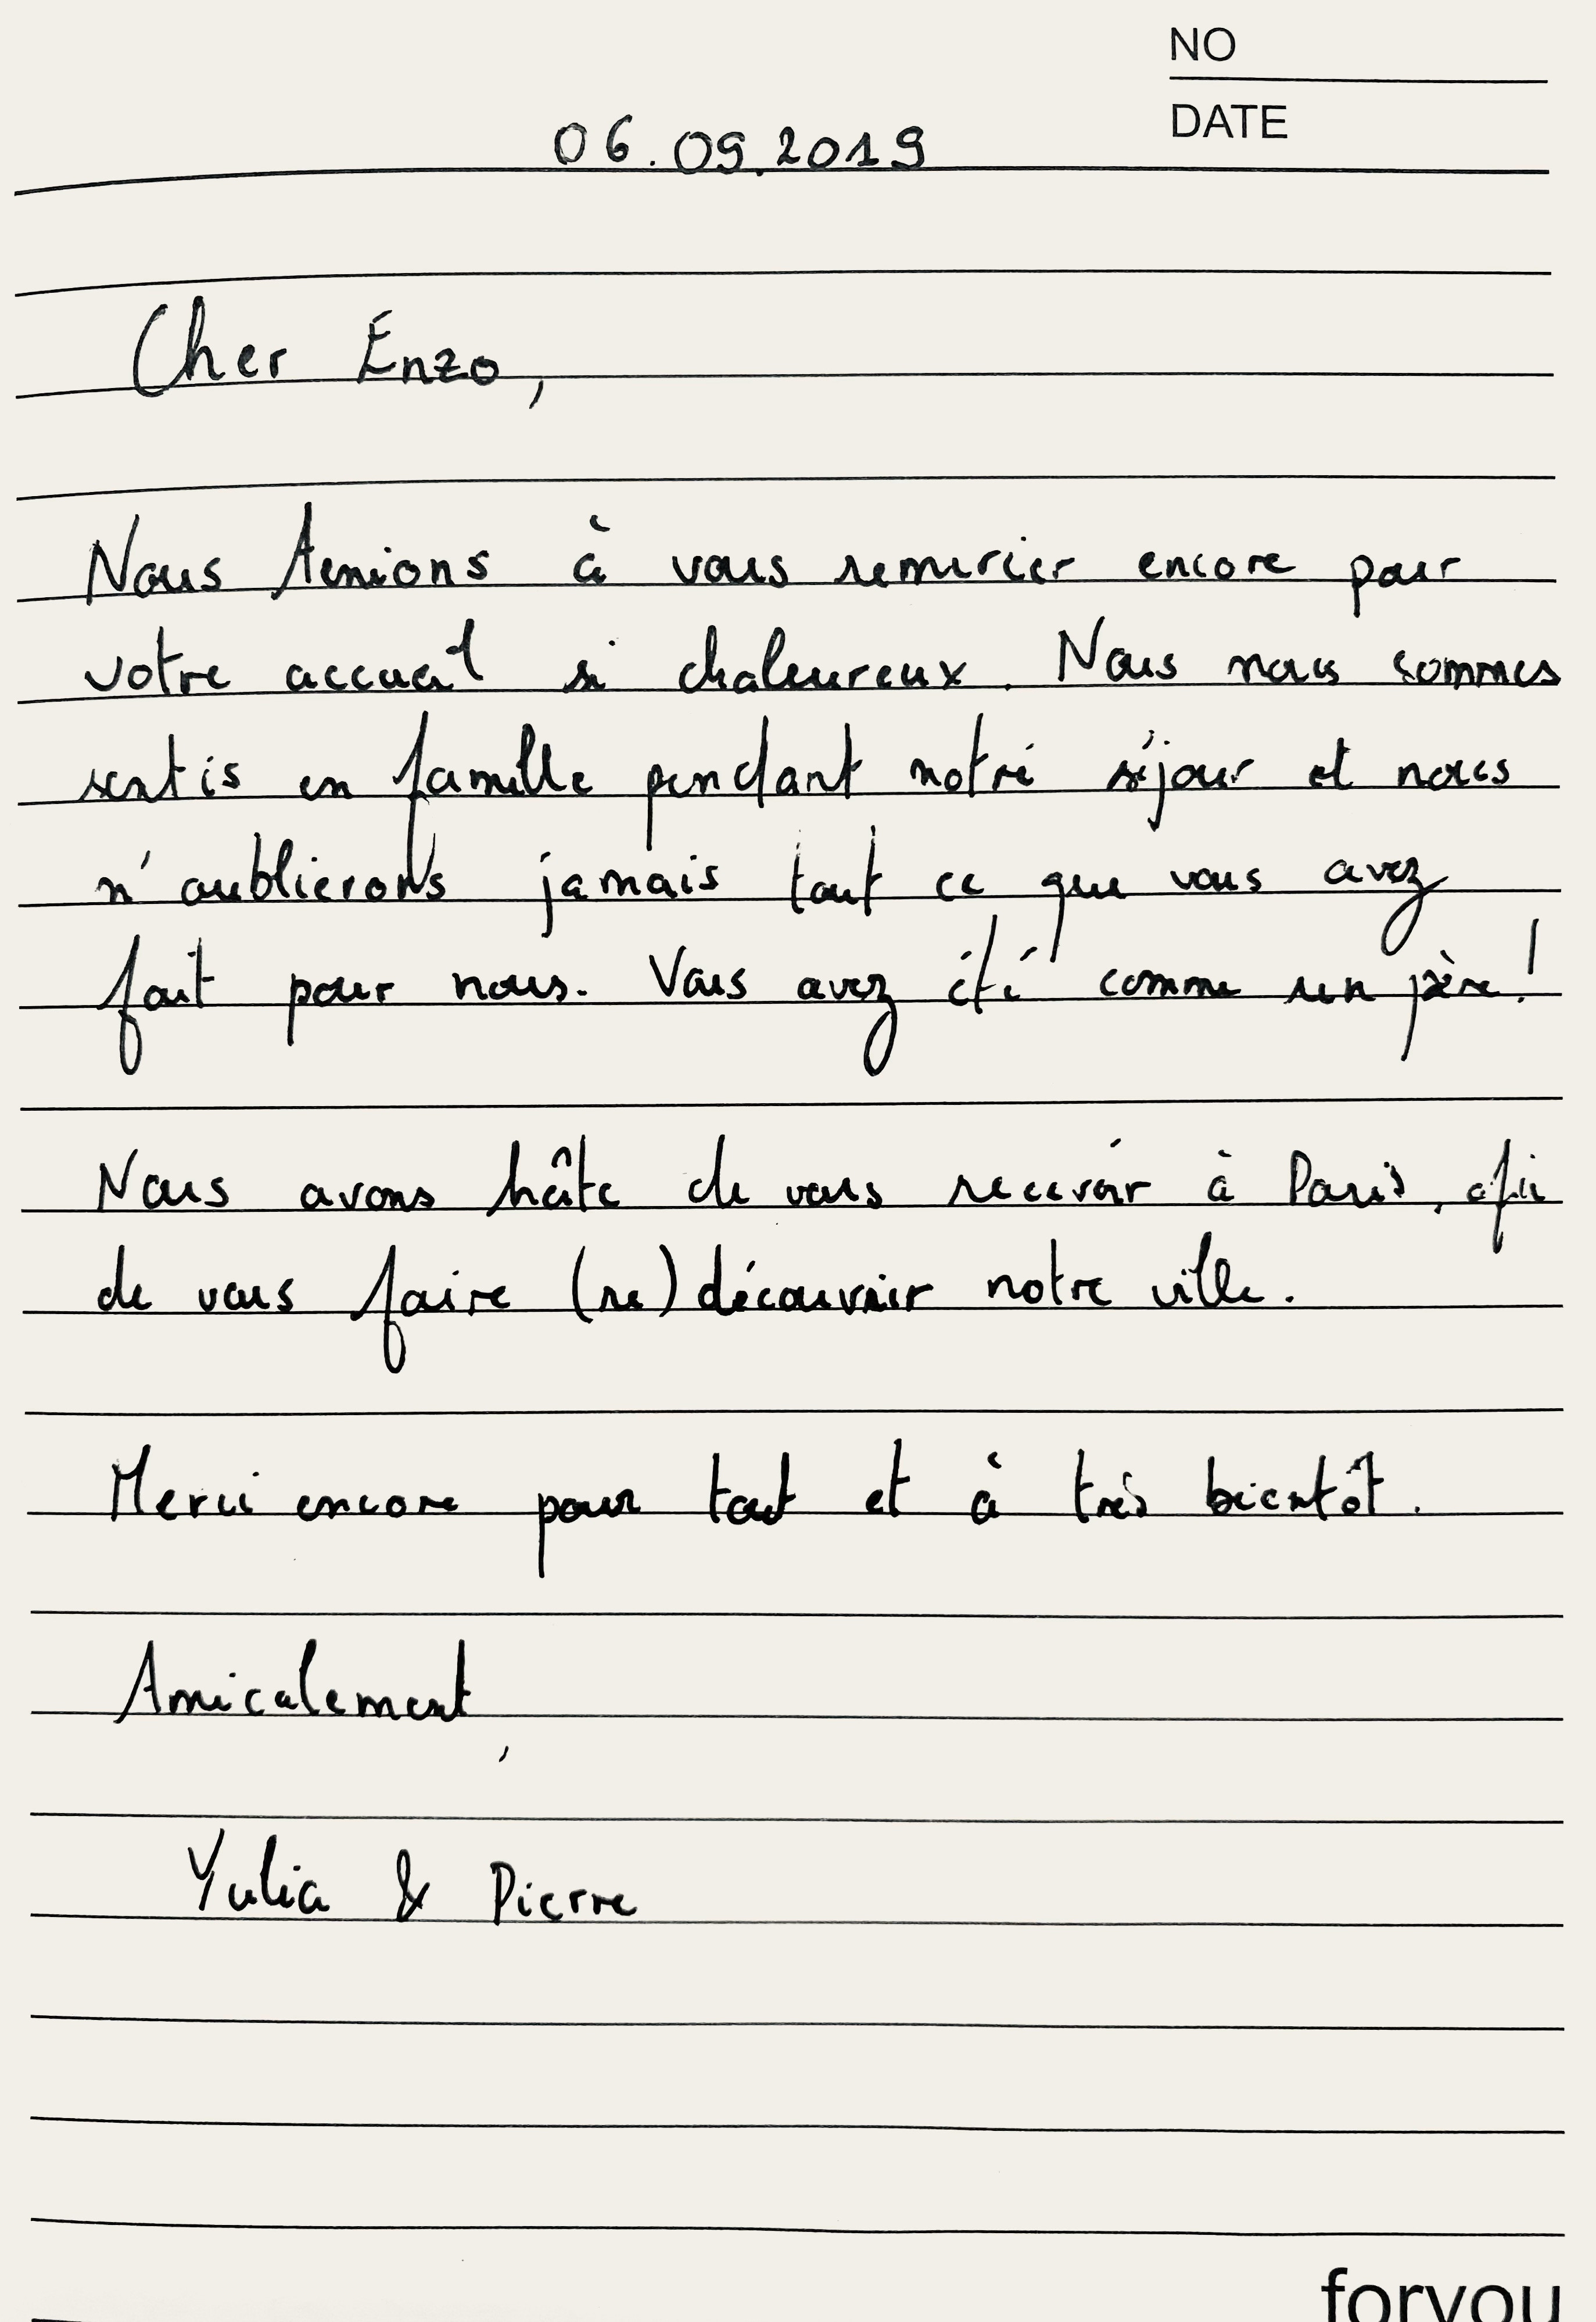 NO
DATE
06.09.2019
Cher Enzo,
Nous tenions à vous remercier encore pour
votre accueil si chaleureux. Nous nous sommes
sentis en famille pendant notre séjour et nous
n'oublierons jamais tout ce que vous avez
fait pour nous. Vous avez été comme un père!
Nous avons hâte de vous recevoir à Paris, afin
de vous faire (re)découvrir notre ville.
Merci encore pour tout et à très bientôt.
Amicalement,
Yulia & Pierre
foryou